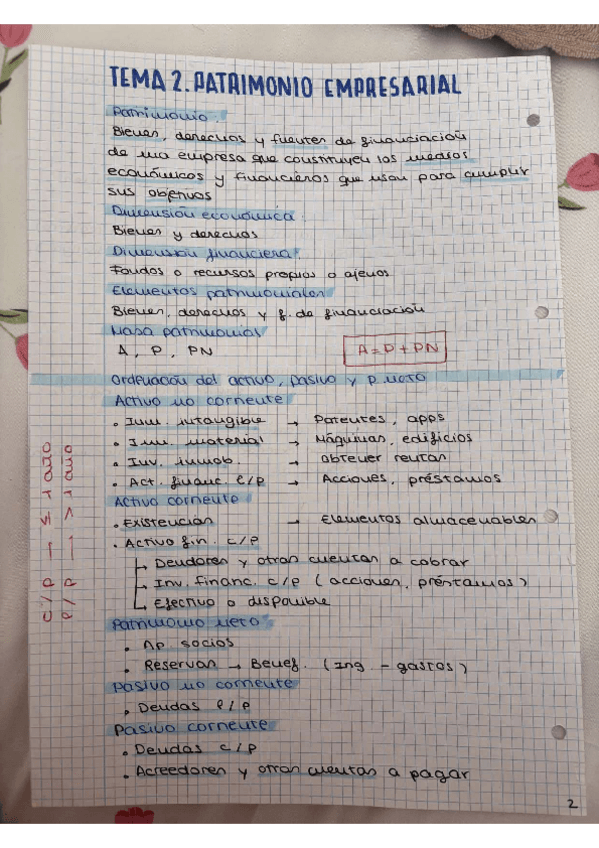 TEMA 2. PATRIMONIO EMPRESARIAL
Patrimonio
Bienes, derechos y fuentes de financiación
de una empresa que constituyen los medios
económicos y financieros que usan para cumplir
sus objetivos
Dimensión económica
Bienes y derechos
Dimensión financiera
Fondos o recursos propios o ajenos
Elementos patrimoniales
Bienes, derechos y f. de financiación
Masa patrimonial
A, P, PN
A = P + PN
Ordenación del activo, pasivo y P. neto
Activo no corriente
• Inm. intangible → Patentes, apps
• Inm. material → Máquinas, edificios
• Inv. inmob. → obtener rentas
• Act. financ. l/p → Acciones, préstamos
Activo corriente
• Existencias → Elementos almacenables
• Activo fin. c/p
Deudores y otras cuentas a cobrar
Inv. financ. c/p (acciones, préstamos)
Efectivo o disponible
c/p — ≤ 1 año
l/p — > 1 año
Patrimonio neto
• Ap. socios
• Reservas → Benef. (Ing - gastos)
Pasivo no corriente
• Deudas l/p
Pasivo corriente
• Deudas c/p
• Acreedores y otras cuentas a pagar
2